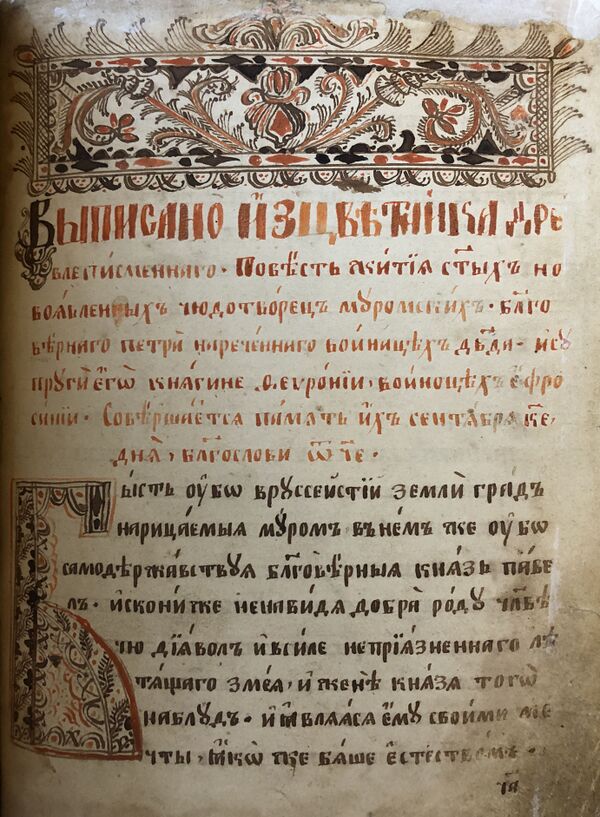 Выписано и҆з цвѣтника дре
влеписменнаго · Повѣсть жи́тїѧ ст҃ыхъ но
воѧвленныхъ чюдотворецъ мꙋромскихъ · бл҃го
вѣрнаго петра̀ нарече́ннаго во и҆нищѣхъ дв҃да · и҆ сꙋ
прꙋги є҆гѡ̀ кнѧгине ѳеѵро́нїи, во и҆ноцѣхъ є҆ѵфро
си́нїи · Соверша́етсѧ па́мѧть и҆́хъ сентѧбрѧ к҃е
днѧ̀, бл҃гослови ѿч҃е ·
Бы́сть ᲂу҆́бѡ в рꙋссе́йстїй землѝ гра́дъ
нарица́емыѧ мꙋ́ромъ в не́мъ же ᲂу҆́бѡ
самоде́ржавствꙋѧ бл҃гові́рныѧ кнѧ́зь па́ве
лъ · и҆скони́ же ненави́дѧ добра̀ ро́дꙋ чл҃вѣ
чю дїа́волъ и҆ всилѐ непрїѧ́зненнаго лѣ
та́щаго змеѧ̀, и҆ женѣ̀ кнѧ́за тогѡ̀
на блꙋ́дъ · и҆ ꙗ҆влѧ́асѧ є҆мꙋ̀ свои́ми ме
чты̀, ꙗ҆́кѡ же бѧ́ше є҆стество́мъ ·